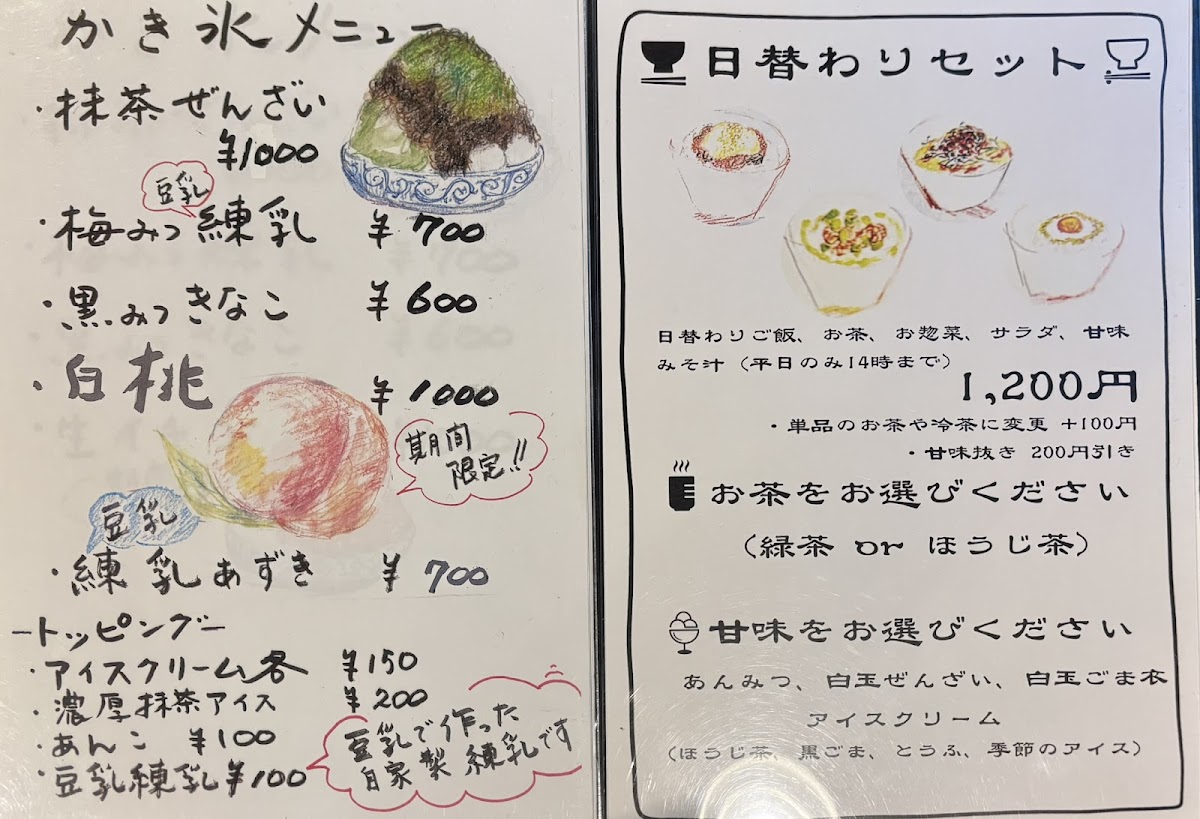 かき氷メニュー
・抹茶ぜんざい
¥1000
豆乳
・梅みつ練乳 ¥700
・黒みつきなこ ¥600
・白桃 ¥1000
期間
限定!!
豆乳
・練乳あずき ¥700
-トッピング-
・アイスクリーム各 ¥150
・濃厚抹茶アイス ¥200
・あんこ ¥100
・豆乳練乳¥100
豆乳で作った
自家製練乳です
日替わりセット
日替わりご飯、お茶、お惣菜、サラダ、甘味
みそ汁（平日のみ14時まで）
1,200円
・単品のお茶や冷茶に変更 +100円
・甘味抜き 200円引き
お茶をお選びください
（緑茶 or ほうじ茶）
甘味をお選びください
あんみつ、白玉ぜんざい、白玉ごま衣
アイスクリーム
（ほうじ茶、黒ごま、とうふ、季節のアイス）